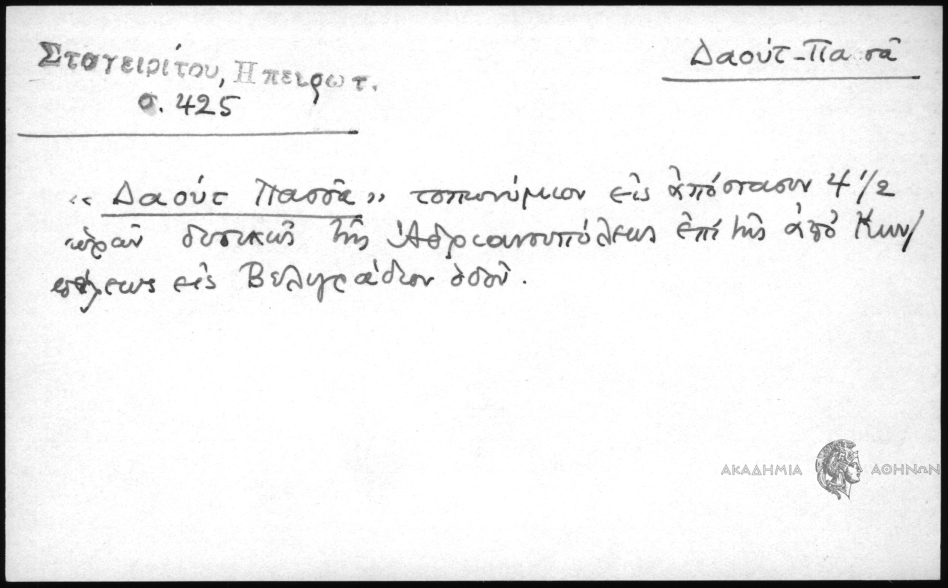 Σταγειρίτου, Ηπειρωτ.
σ. 425
Δαούτ-Πασᾶ
« Δαούτ Πασσᾶ » τοπωνύμιον εἰς ἀπόστασιν 4 1/2
ὡρῶν δυτικῶς τῆς Ἀδριανουπόλεως ἐπί τῆς ἀπό Κων/
πόλεως εἰς Βελιγράδιον ὁδοῦ.
ΑΚΑΔΗΜΙΑ ΑΘΗΝΩΝ